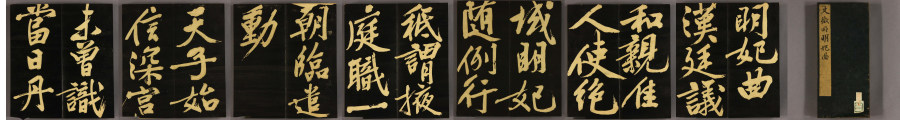 明妃曲
漢廷議
和親佳
人使絶
域明妃
随例行
秖謂掖
庭職一
朝臨遣
動
天子始
信深宮
未曾識
當日丹